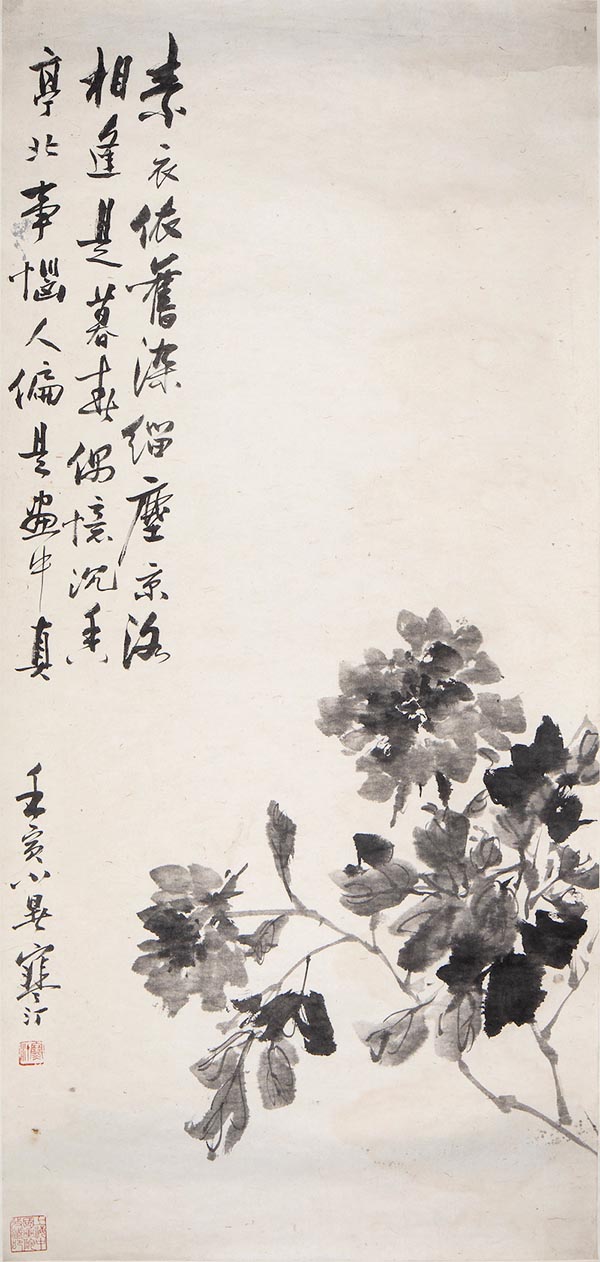 素衣依舊染緇塵京洛
相逢是暮春偶憶沉香
亭北事惱人偏是畫中真
壬寅小暑寒汀